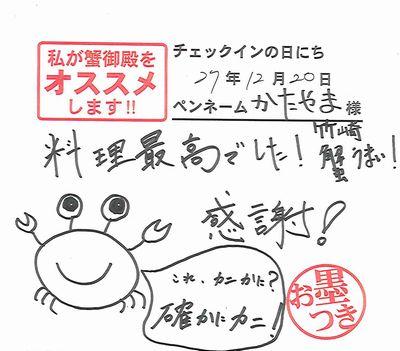 私が蟹御殿を
オススメ
します!!
チェックインの日にち
27年12月20日
ペンネーム かたやま 様
料理最高でした!
竹崎
蟹うまい!
感謝!
これ、カニかに?
確かにカニ!
お墨つき